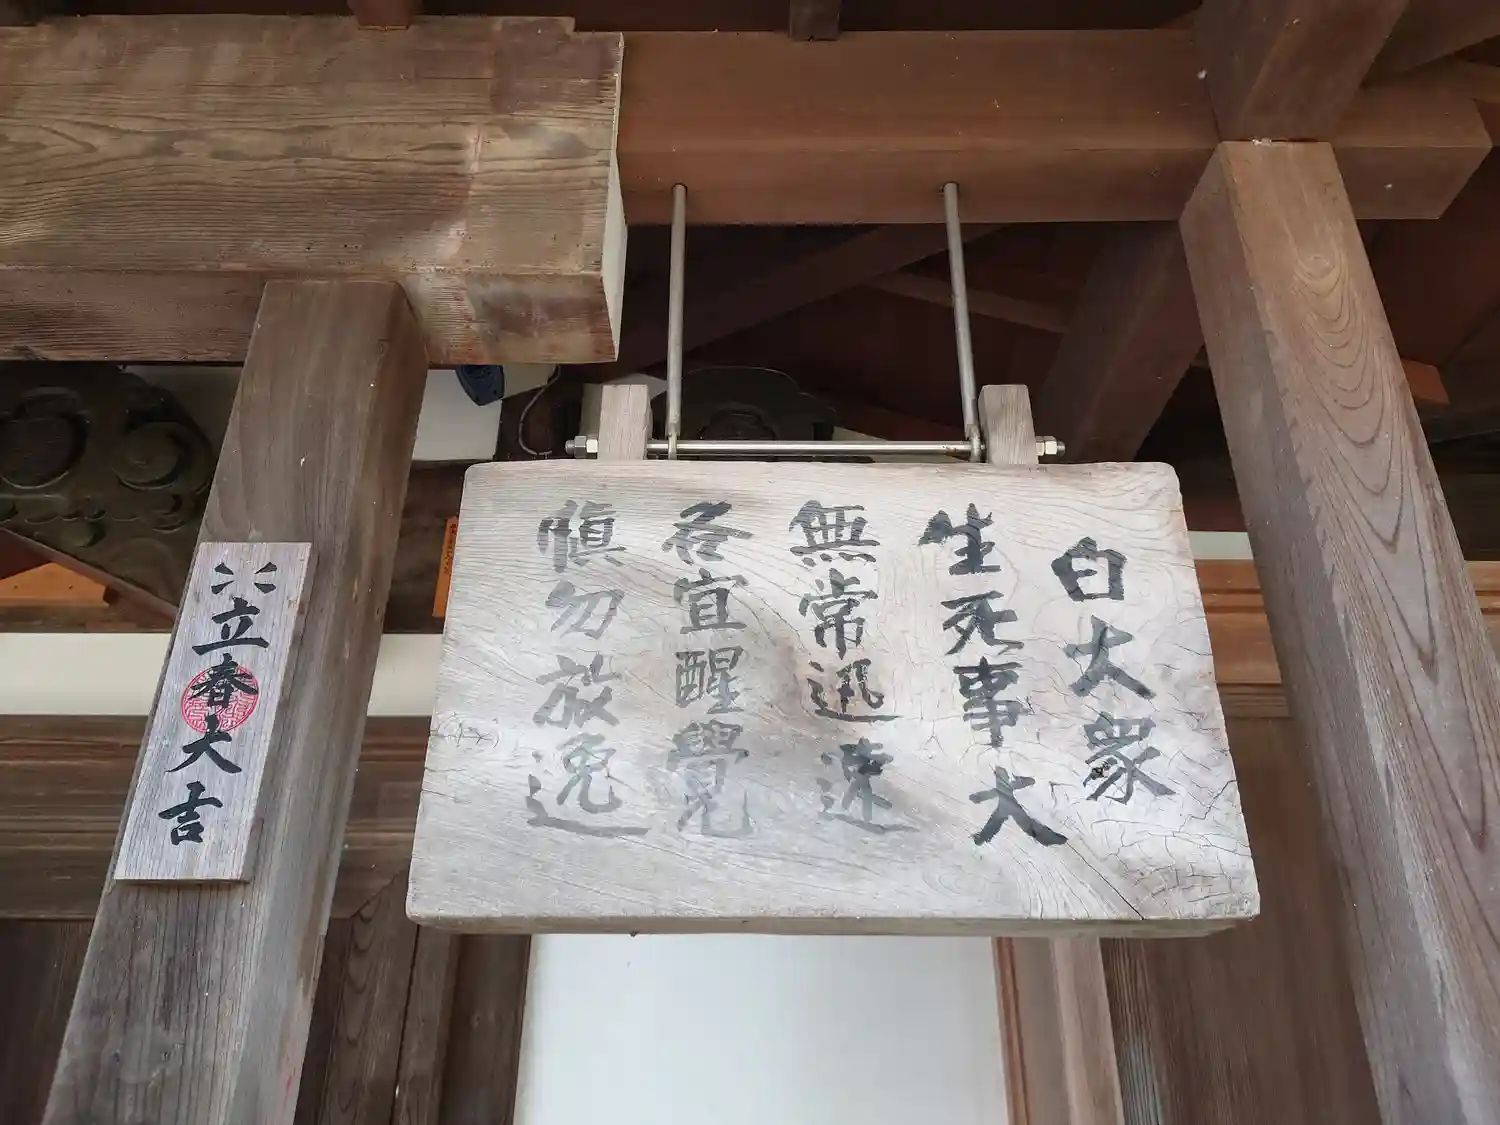 白大衆
生死事大
無常迅速
各宜醒覺
慎勿放逸
立春大吉